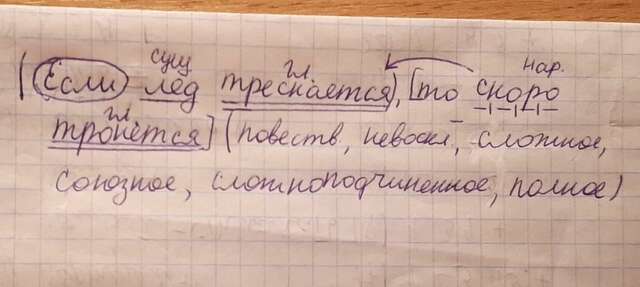 сущ гл. нар.
(Если лед трескается), [то скоро
гл.
тронется] (повеств, невоскл, сложное,
союзное, сложноподчиненное, полное)